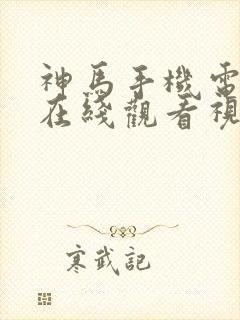 神馬手機電
在綫觀看視
寒武記